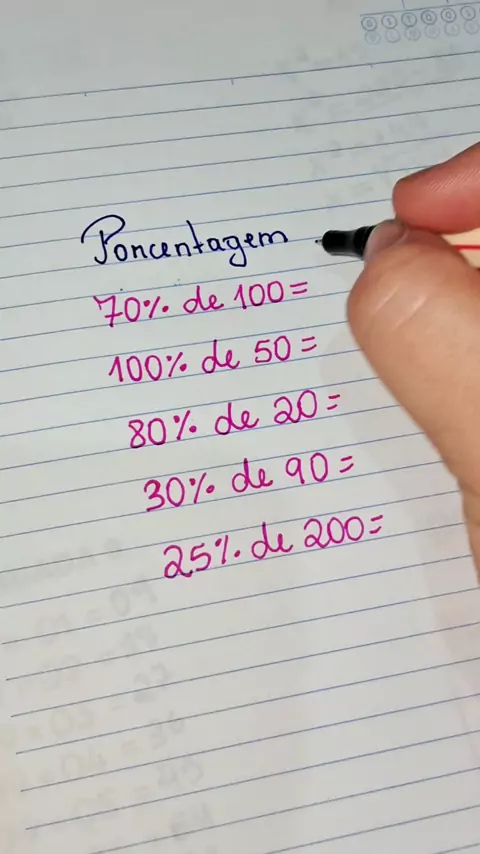 Porcentagem
70% de 100=
100% de 50=
80% de 20=
30% de 90=
25% de 200=